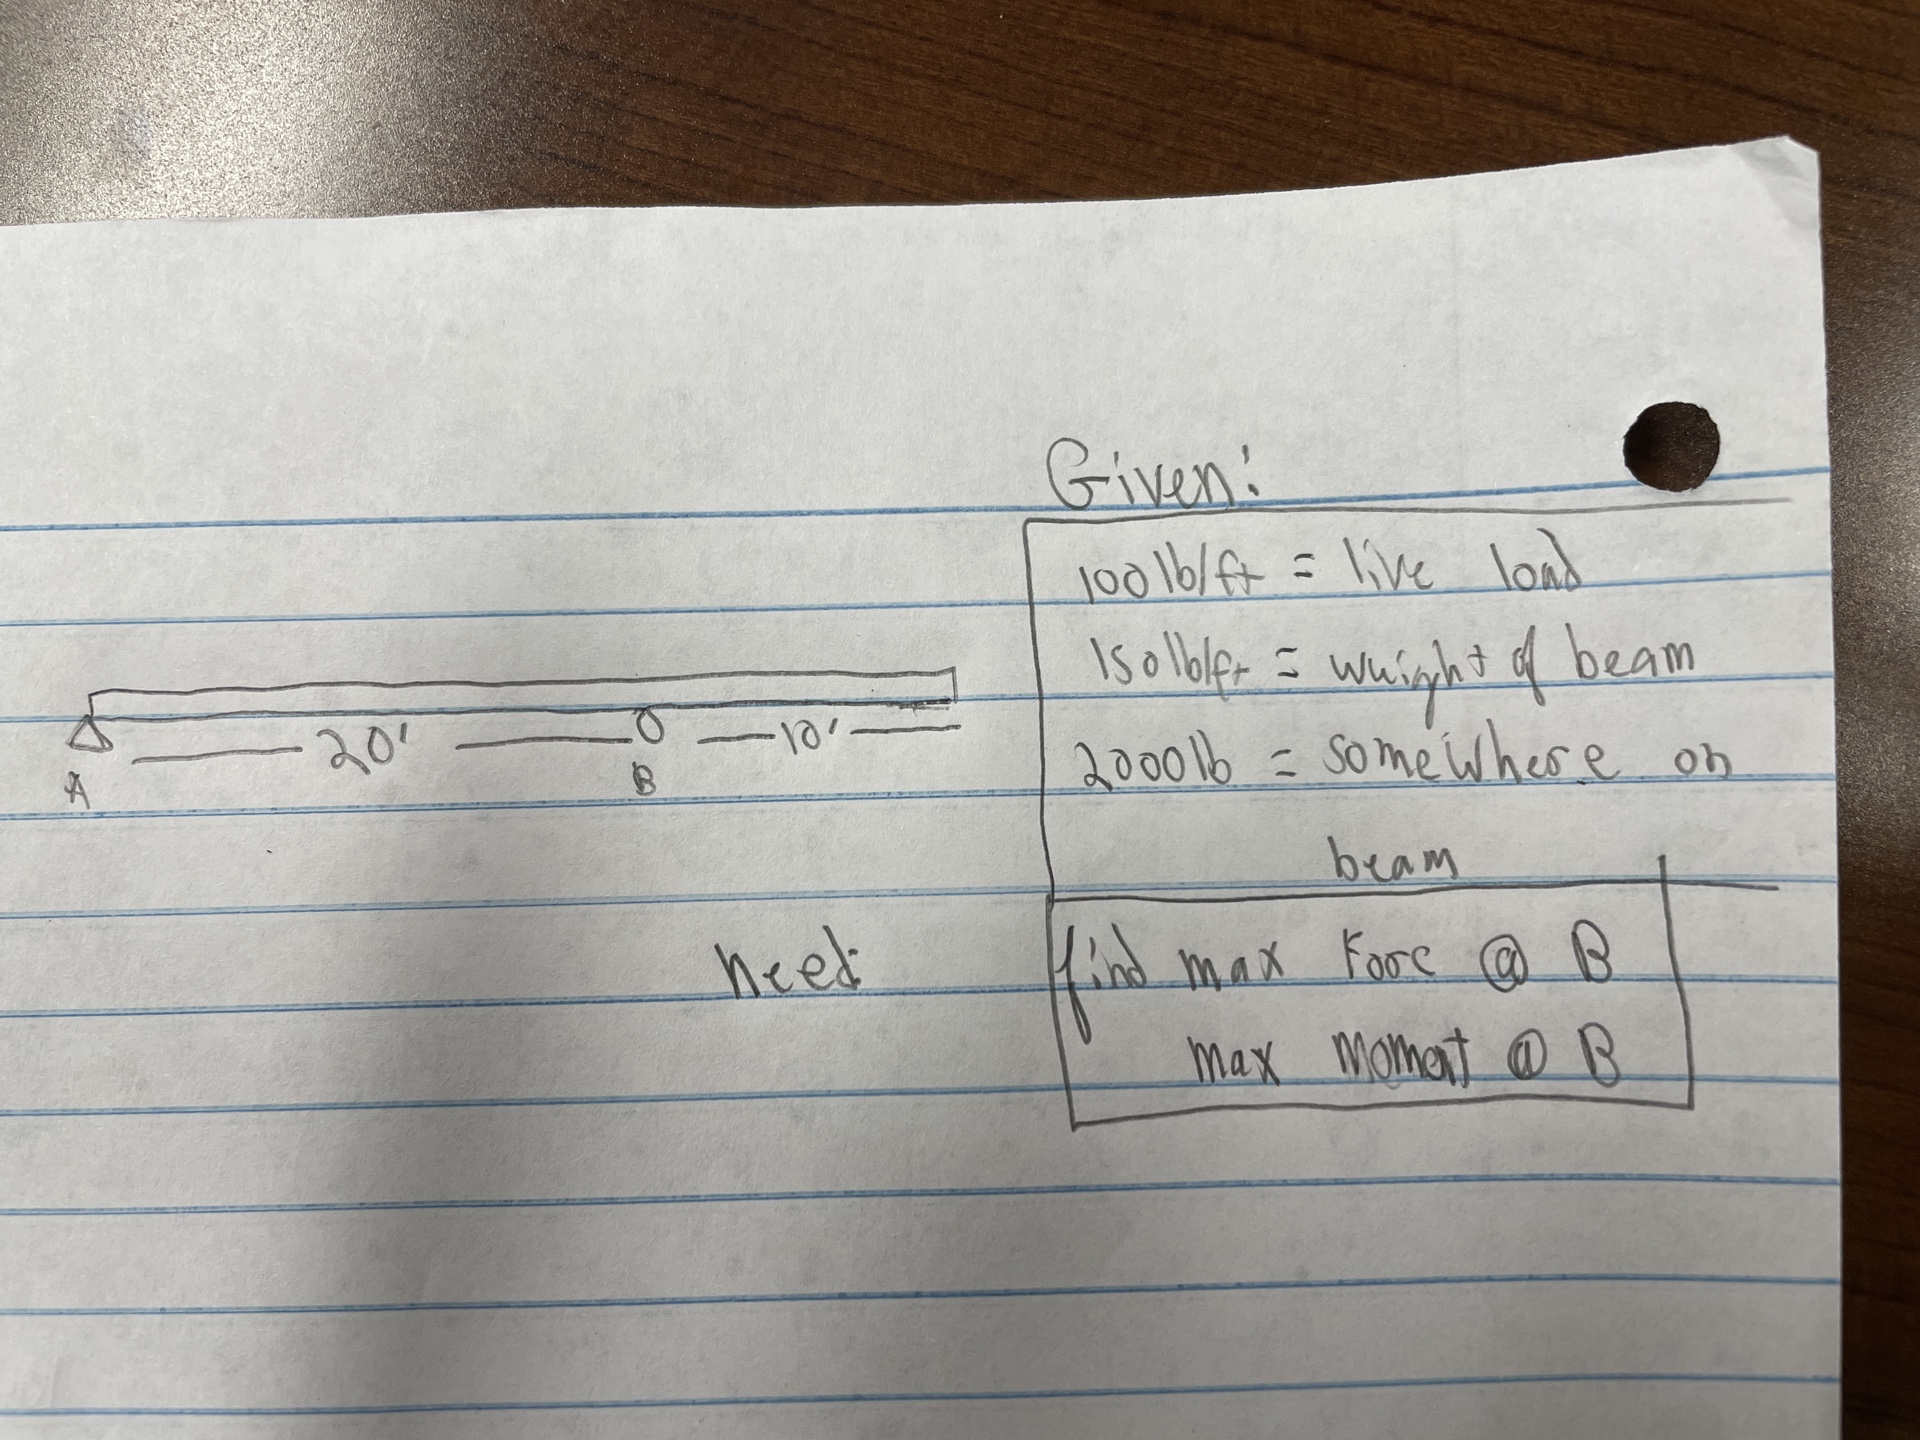 Given:
100 lb/ft = live load
150 lb/ft = weight of beam
2000 lb = somewhere on
beam
20'
10'
A
B
Need:
find max Forc @ B
max Moment @ B